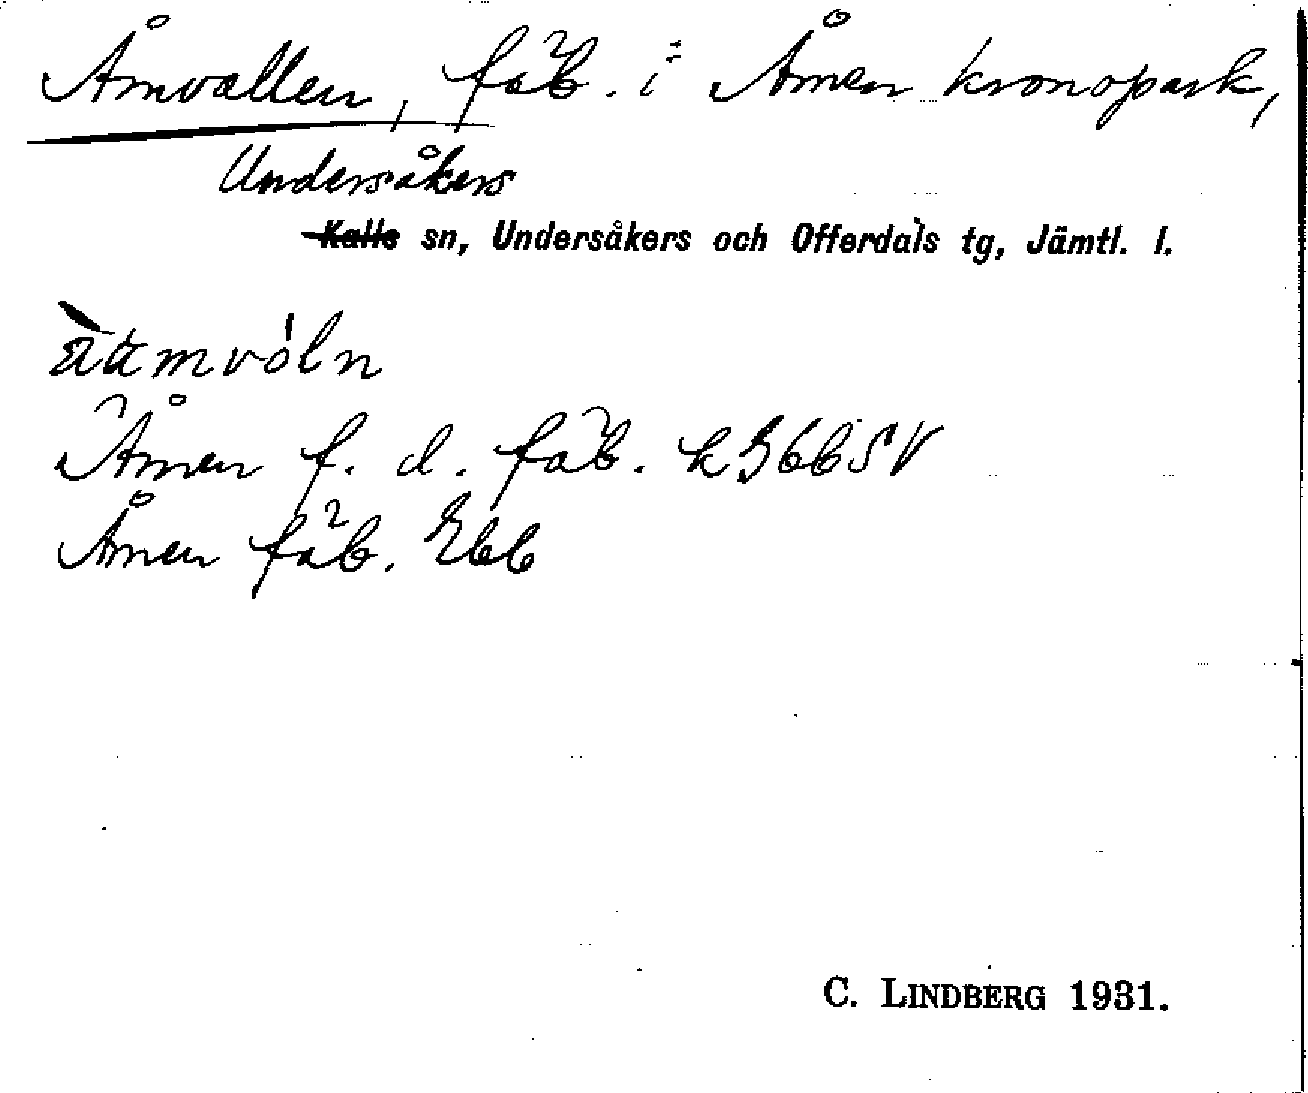 Åmvallen, fäb. i Åmen kronopark,
Undersåkers
Kalls sn, Undersåkers och Offerdals tg, Jämtl. l.
Åmen f. d. fäb. k366SV
Åmen fäb. Ebb
C. LINDBERG 1931.